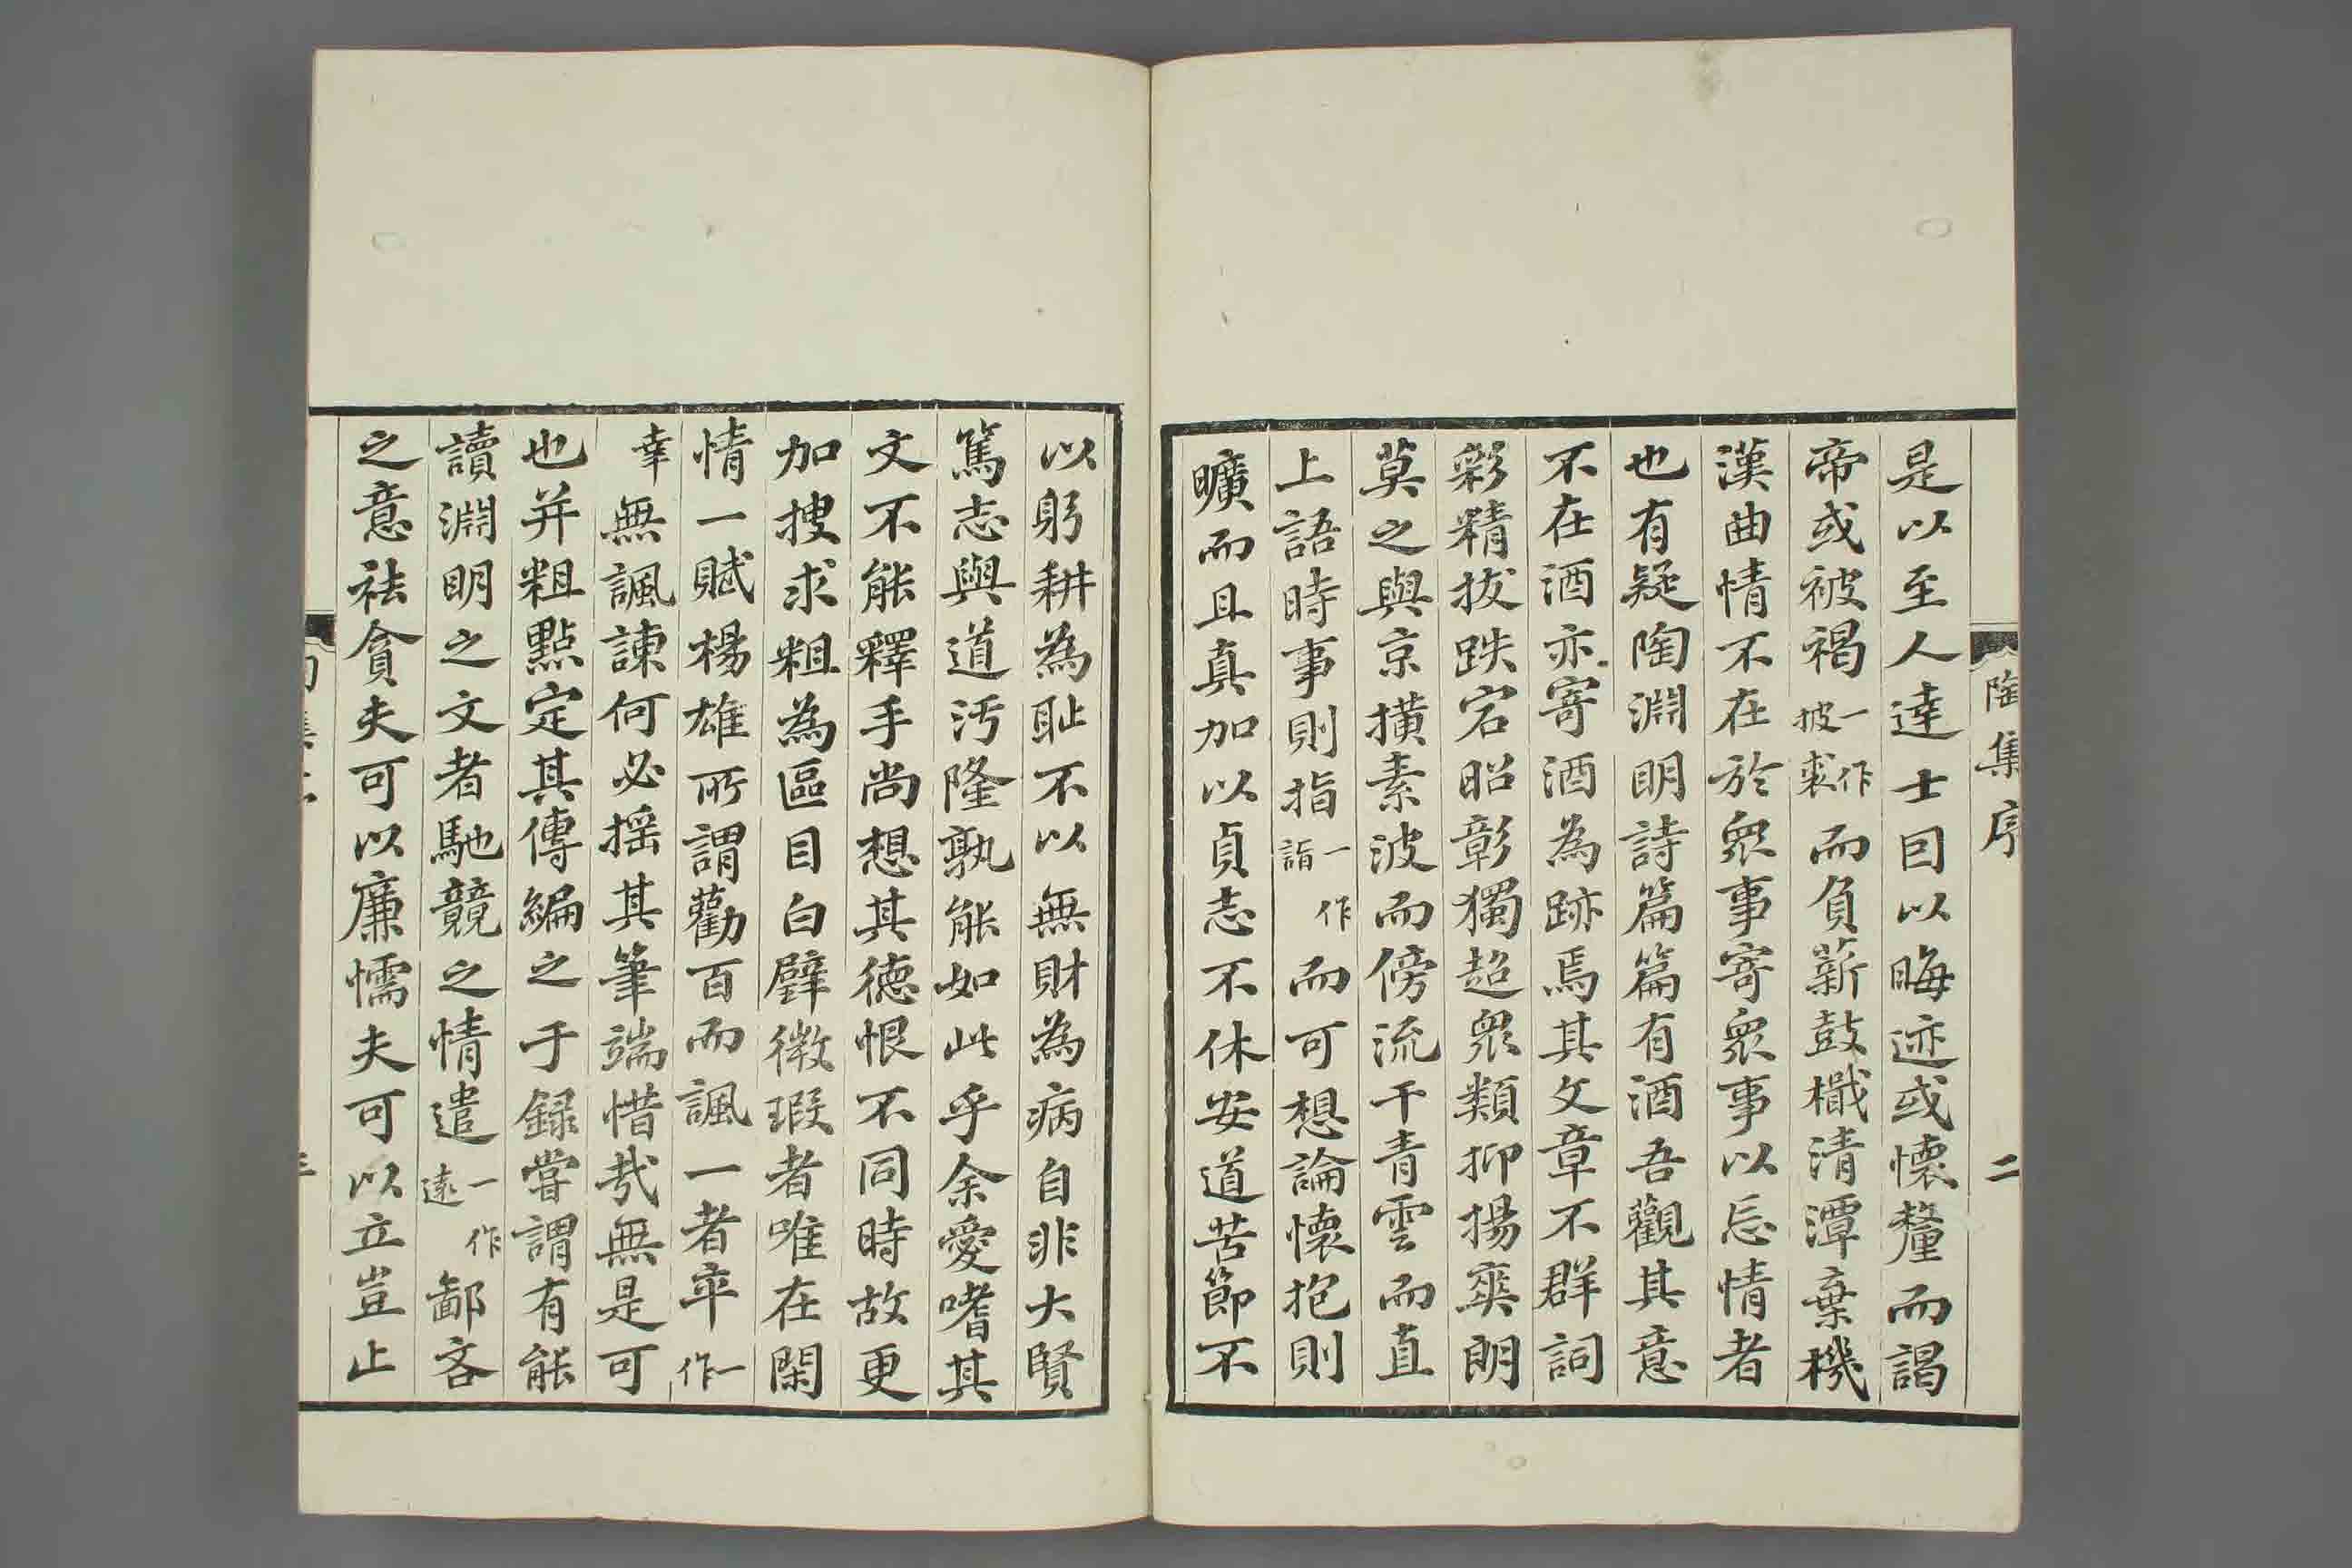 陶集序 二
是以至人達士因以晦迹或懷釐而謁
帝或被褐一作披裘而負薪鼓檝清潭棄機
漢曲情不在於衆事寄衆事以忘情者
也有疑陶淵明詩篇篇有酒吾觀其意
不在酒亦寄酒為跡焉其文章不群詞
彩精拔跌宕昭彰獨超衆類抑揚爽朗
莫之與京橫素波而傍流干青雲而直
上語時事則指一作詣而可想論懷抱則
曠而且真加以貞志不休安道苦節不
以躬耕為恥不以無財為病自非大賢
篤志與道汚隆孰能如此乎余愛嗜其
文不能釋手尚想其德恨不同時故更
加搜求粗為區目白璧微瑕者唯在閑
情一賦楊雄所謂勸百而諷一者卒一作
幸無諷諫何必搖其筆端惜哉無是可
也并粗點定其傳編之于録嘗謂有能
讀淵明之文者馳競之情遣一作遠鄙吝
之意祛貪夫可以廉懦夫可以立豈止